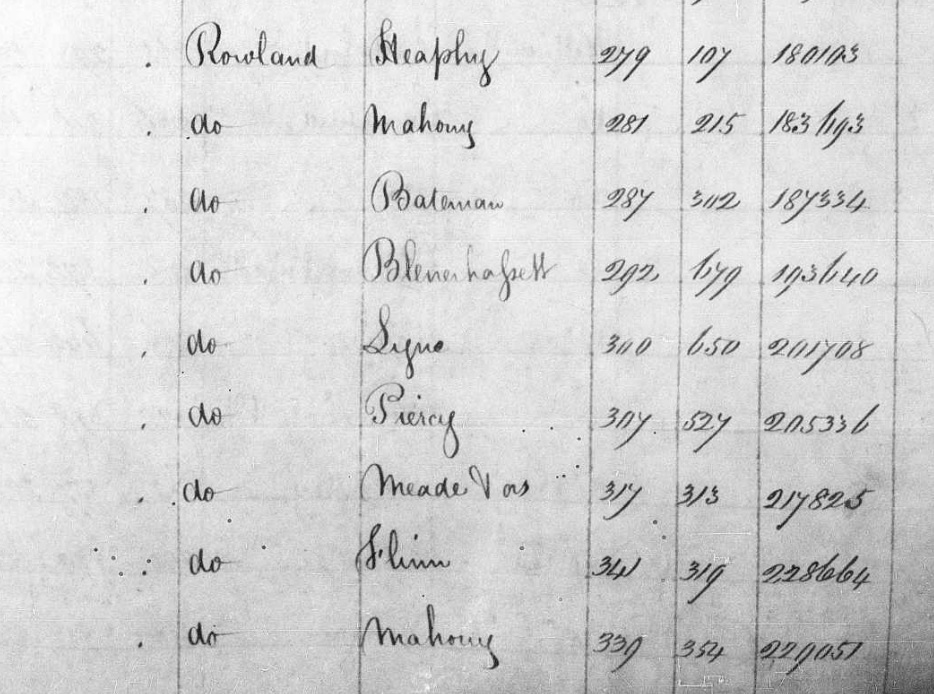 Rowland Heaphy 279 107 180103
do Mahony 281 215 183693
do Bateman 287 302 187334
do Blenerhassett 292 679 193640
do Lyne 300 650 201708
do Piercy 307 527 205336
do Meade & ors 317 313 217825
do Flinn 341 319 228664
do Mahony 339 354 229051